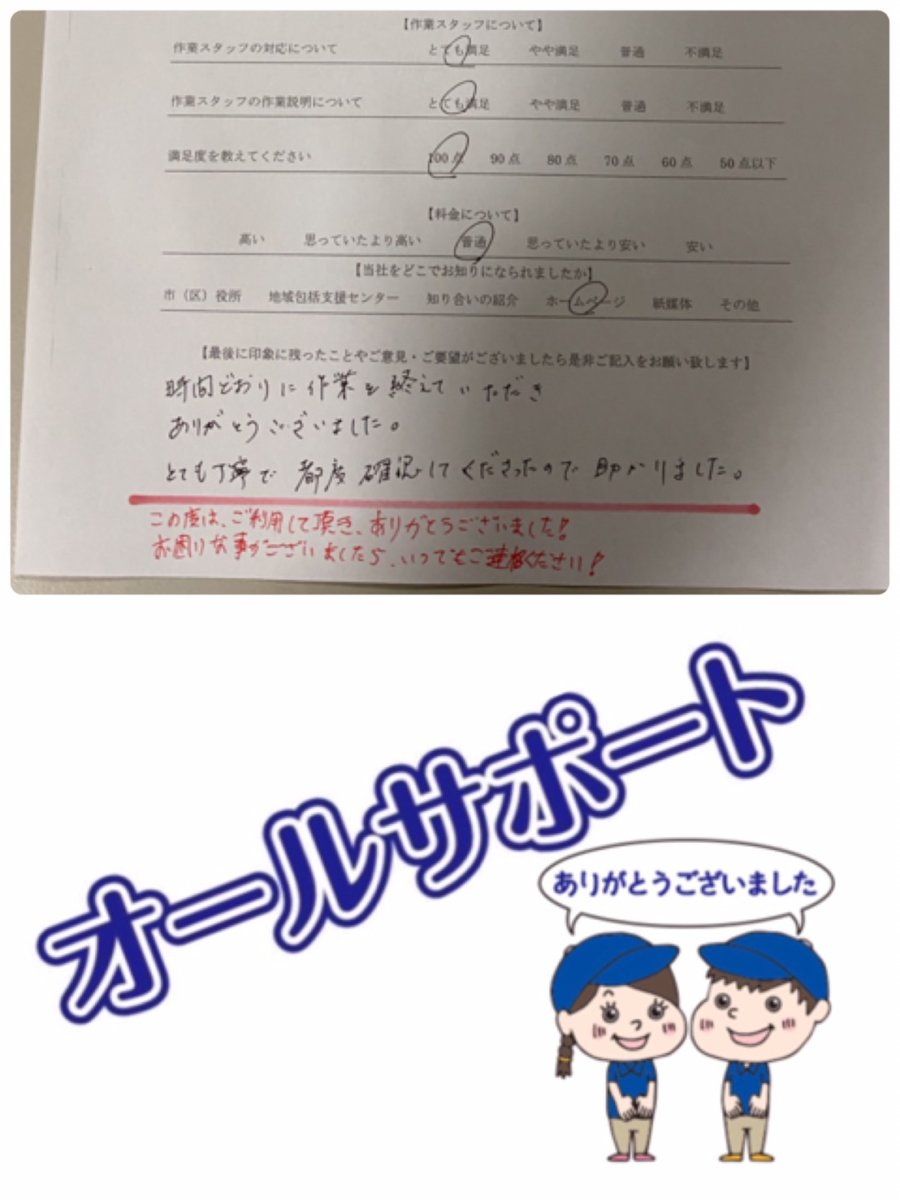 【作業スタッフについて】
作業スタッフの対応について とても満足 やや満足 普通 不満足
作業スタッフの作業説明について とても満足 やや満足 普通 不満足
満足度を教えてください 100点 90点 80点 70点 60点 50点以下
【料金について】
高い 思っていたより高い 普通 思っていたより安い 安い
【当社をどこでお知りになられましたか】
市(区)役所 地域包括支援センター 知り合いの紹介 ホームページ 紙媒体 その他
【最後に印象に残ったことやご意見・ご要望がございましたら是非ご記入をお願い致します】
時間どおりに作業を終えていただき
ありがとうございました。
とても丁寧で都度確認してくださったので助かりました。
この度は、ご利用して頂き、ありがとうございました!
お困りな事がございましたら、いつでもご連絡ください!
オールサポート
ありがとうございました